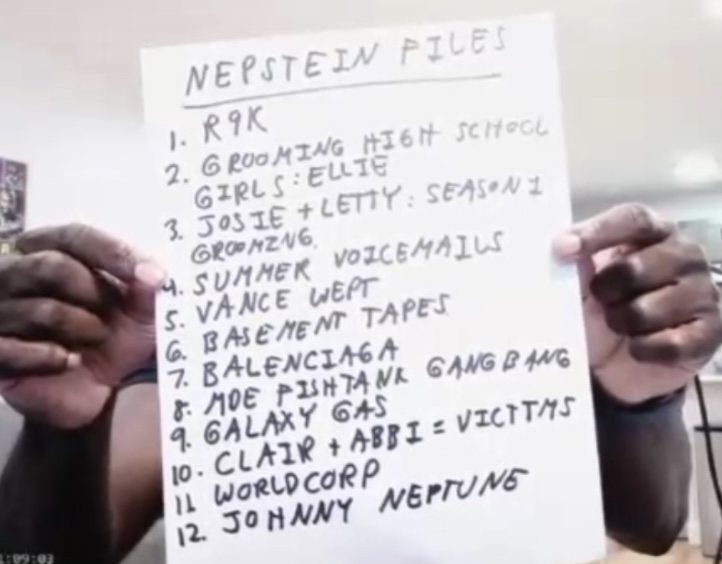 NEPSTEIN FILES
1. R9K
2. GROOMING HIGH SCHOOL
GIRLS: ELLIE
3. JOSIE + LETTY: SEASON 1
GROOMING.
4. SUMMER VOICEMAILS
5. VANCE WEPT
6. BASEMENT TAPES
7. BALENCIAGA
8. MDE FISHTANK GANGBANG
9. GALAXY GAS
10. CLAIR + ABBI = VICTIMS
11 WORLDCORP
12. JOHNNY NEPTUNE
1:09:03